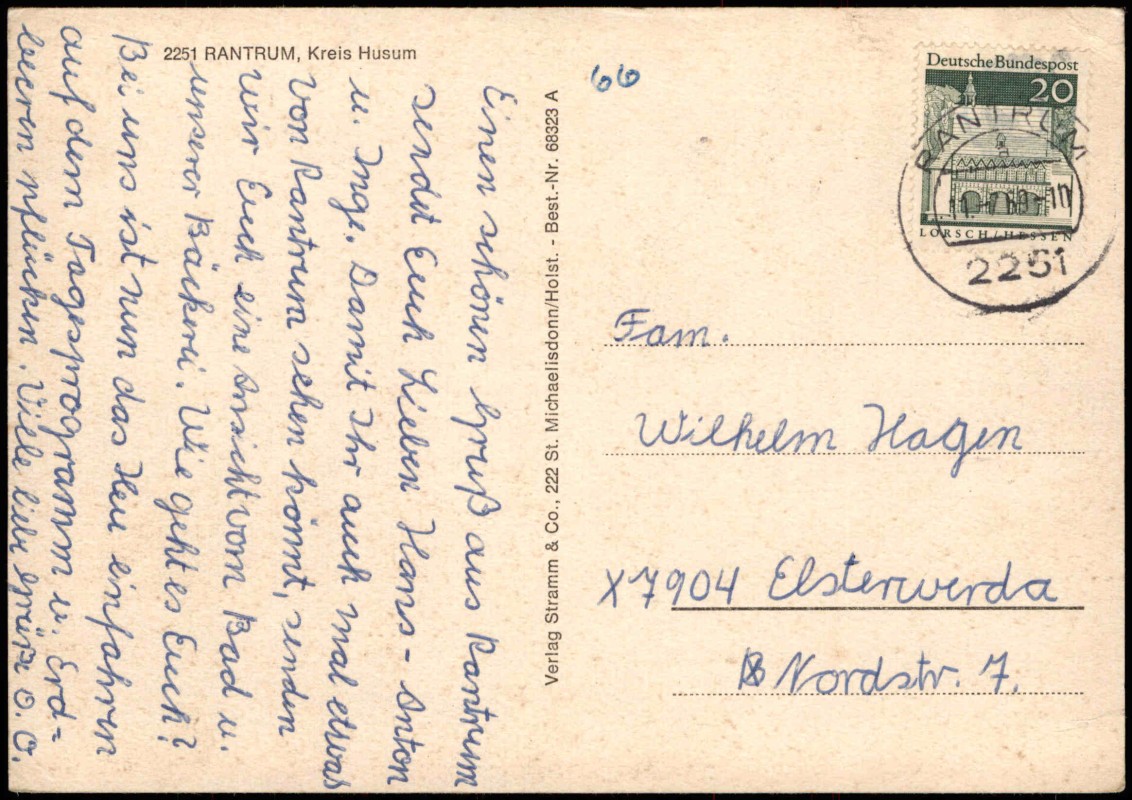 2251 RANTRUM, Kreis Husum
Einen schönen Gruß aus Rantrum
sendet Euch Lieben Hans-Anton
u. Inge. Damit Ihr auch mal etwas
von Rantrum sehen könnt, senden
wir Euch eine Ansicht vom Bad u.
unserer Bäckerei. Wie geht es Euch?
Bei uns ist nun das Heu einfahren
auf dem Tagesprogramm u. Erd-
beeren pflücken. Viele liebe Grüße o. O.
Verlag Stramm & Co., 222 St. Michaelisdonn/Holst. - Best.-Nr. 68323 A
66
Deutsche Bundespost
20
LORSCH/HESSEN
RANTRUM
2251
Fam.
Wilhelm Hagen
X7904 Elsterwerda
Nordstr. 7.